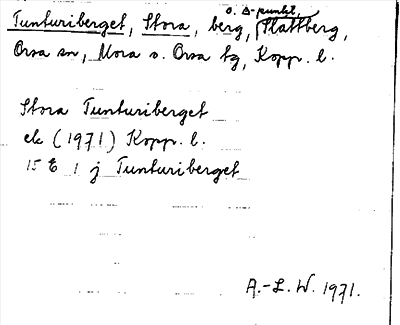 Tunturiberget, Stora, berg, o. Δ-punkt, Slattberg,
Orsa sn, Mora o. Orsa tg, Kopp. l.
Stora Tunturiberget
ek (1971) Kopp. l.
15 E 1 j Tunturiberget
A.-L. W. 1971.